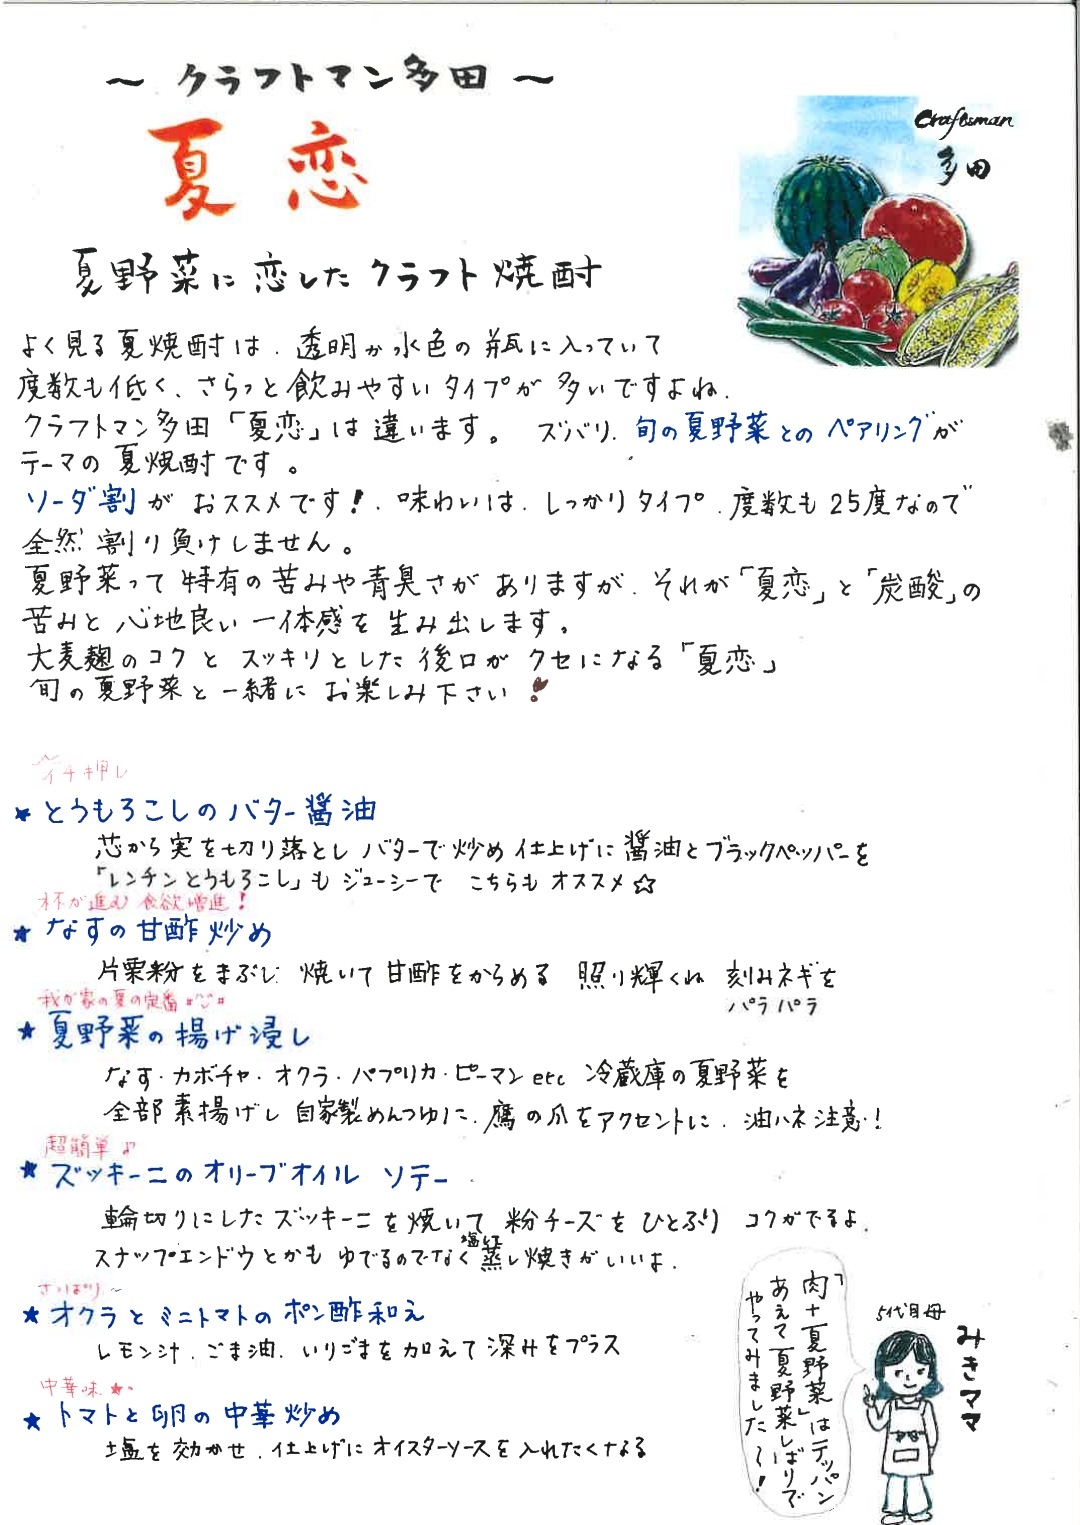 ～ クラフトマン多田 ～
夏恋
Craftsman
多田
夏野菜に恋したクラフト焼酎
よく見る夏焼酎は、透明か水色の瓶に入っていて
度数も低く、さらっと飲みやすいタイプが多いですよね。
クラフトマン多田「夏恋」は違います。 ズバリ、旬の夏野菜とのペアリングが
テーマの夏焼酎です。
ソーダ割がおススメです!、味わいは、しっかりタイプ、度数も25度なので
全然割り負けしません。
夏野菜って特有の苦みや青臭さがありますが、それが「夏恋」と「炭酸」の
苦みと心地良い一体感を生み出します。
大麦麹のコクとスッキリとした後口がクセになる「夏恋」
旬の夏野菜と一緒にお楽しみ下さい!
イチ押し
★とうもろこしのバター醤油
芯から実を切り落としバターで炒め仕上げに醤油とブラックペッパーを
「レンチンとうもろこし」もジューシーで こちらもオススメ☆
杯が進む 食欲増進!
★なすの甘酢炒め
片栗粉をまぶし 焼いて甘酢をからめる 照り輝くね 刻みネギを
パラパラ
我が家の夏の定番
★夏野菜の揚げ浸し
なす・カボチャ・オクラ・パプリカ・ピーマンetc 冷蔵庫の夏野菜を
全部素揚げし 自家製めんつゆに、鷹の爪をアクセントに、油ハネ注意!
超簡単♪
★ズッキーニのオリーブオイル ソテー
輪切りにしたズッキーニを焼いて 粉チーズをひとふり コクがでるよ。
スナップエンドウとかも ゆでるのでなく蒸し焼きがいいよ。
さっぱり～
★オクラとミニトマトのポン酢和え
レモン汁、ごま油、いりごまを加えて深みをプラス
中華味★
★トマトと卵の中華炒め
塩を効かせ、仕上げにオイスターソースを入れたくなる
「肉+夏野菜」はテッパン
あえて夏野菜しばりで
やってみました～!
5代目母
みきママ